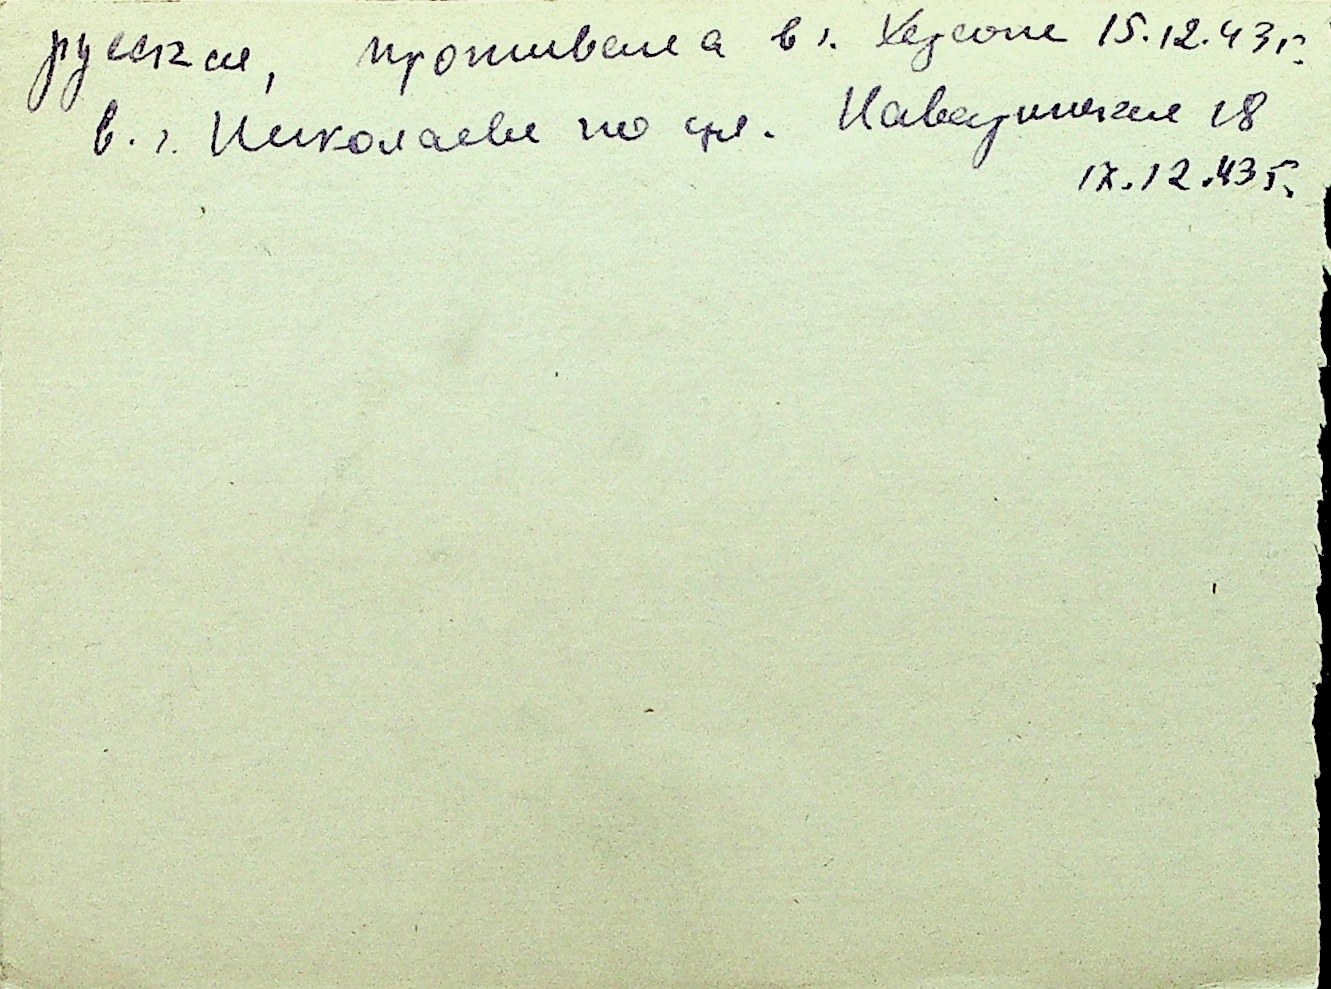 русская, проживала в г. Херсоне 15.12.43 г.
в. г. Николаеве по ул. Наваринская 18
17.12.43 г.